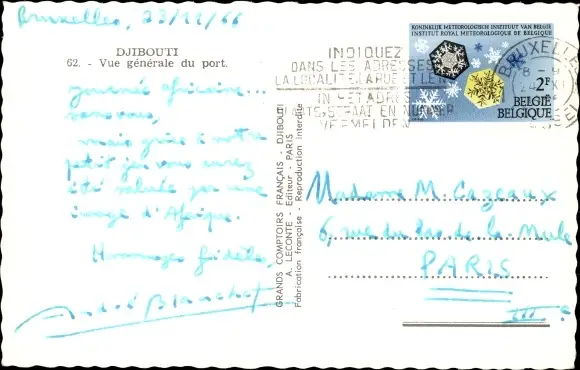 Bruxelles, 23/11/66
DJIBOUTI
62. - Vue générale du port.
journée africaine...
sans vous,
mais grâce à notre
petit jeu vous aurez
été saluée par une
image d'Afrique.
Hommages fidèles,
André Blanchet
GRANDS COMPTOIRS FRANÇAIS - DJIBOUTI
A. LECONTE - Editeur - PARIS
Fabrication française - Reproduction interdite
INDIQUEZ
DANS LES ADRESSES
LA LOCALITE, LA RUE ET LE N°
IN HET ADRES
PLAATS, STRAAT EN NUMMER
VERMELDEN
KONINKLIJK METEOROLOGISCH INSTITUUT VAN BELGIË
INSTITUT ROYAL METEOROLOGIQUE DE BELGIQUE
2F
BELGIË
BELGIQUE
BRUXELLES
Madame M. Cazeaux
6, rue du Pas de la Mule
PARIS
III e